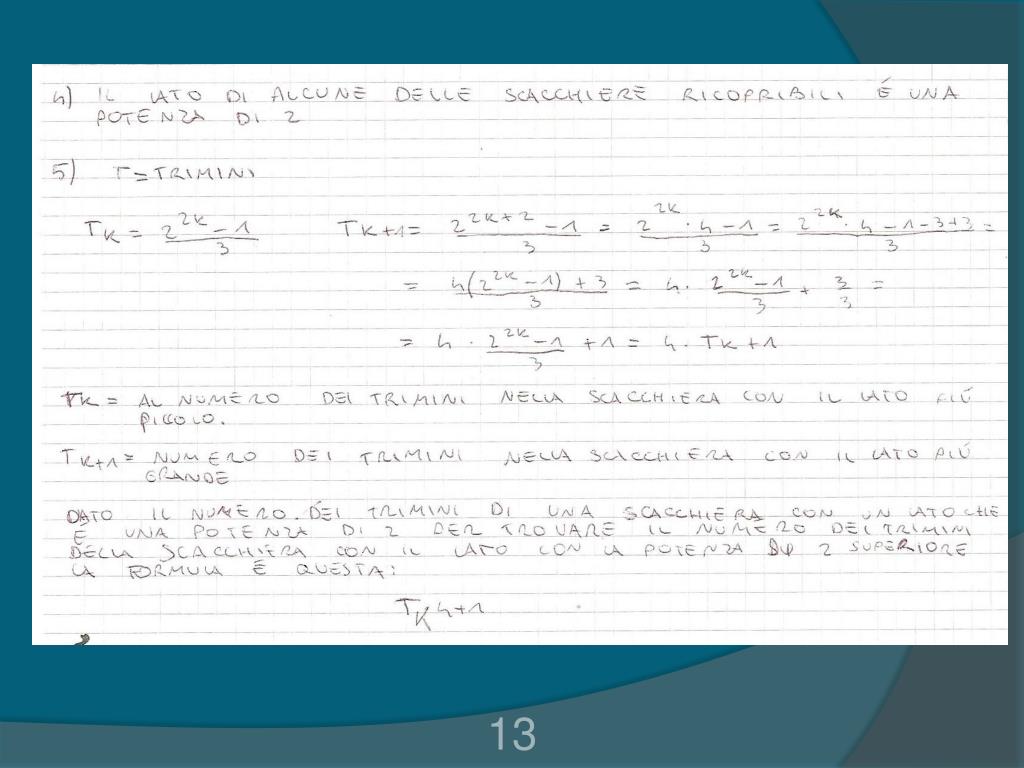 4) IL LATO DI ALCUNE DELLE SCACCHIERE RICOPRIBILI É UNA
POTENZA DI 2
5) T=TRIMINI
TK = (2^2K - 1)/3    TK+1 = (2^2K+2 - 1)/3 = (2^2K · 4 - 1)/3 = (2^2K · 4 - 1 - 3 + 3)/3 =
= (4(2^2K - 1) + 3)/3 = 4 · (2^2K - 1)/3 + 3/3 =
= 4 · (2^2K - 1)/3 + 1 = 4 · TK + 1
TK = AL NUMERO DEI TRIMINI NELLA SCACCHIERA CON IL LATO PIÚ
PICCOLO.
TK+1 = NUMERO DEI TRIMINI NELLA SCACCHIERA CON IL LATO PIÚ
GRANDE
DATO IL NUMERO DEI TRIMINI DI UNA SCACCHIERA CON UN LATO CHE
É UNA POTENZA DI 2 PER TROVARE IL NUMERO DEI TRIMINI
DELLA SCACCHIERA CON IL LATO CON LA POTENZA DI 2 SUPERIORE
LA FORMULA É QUESTA:
TK 4+1
13